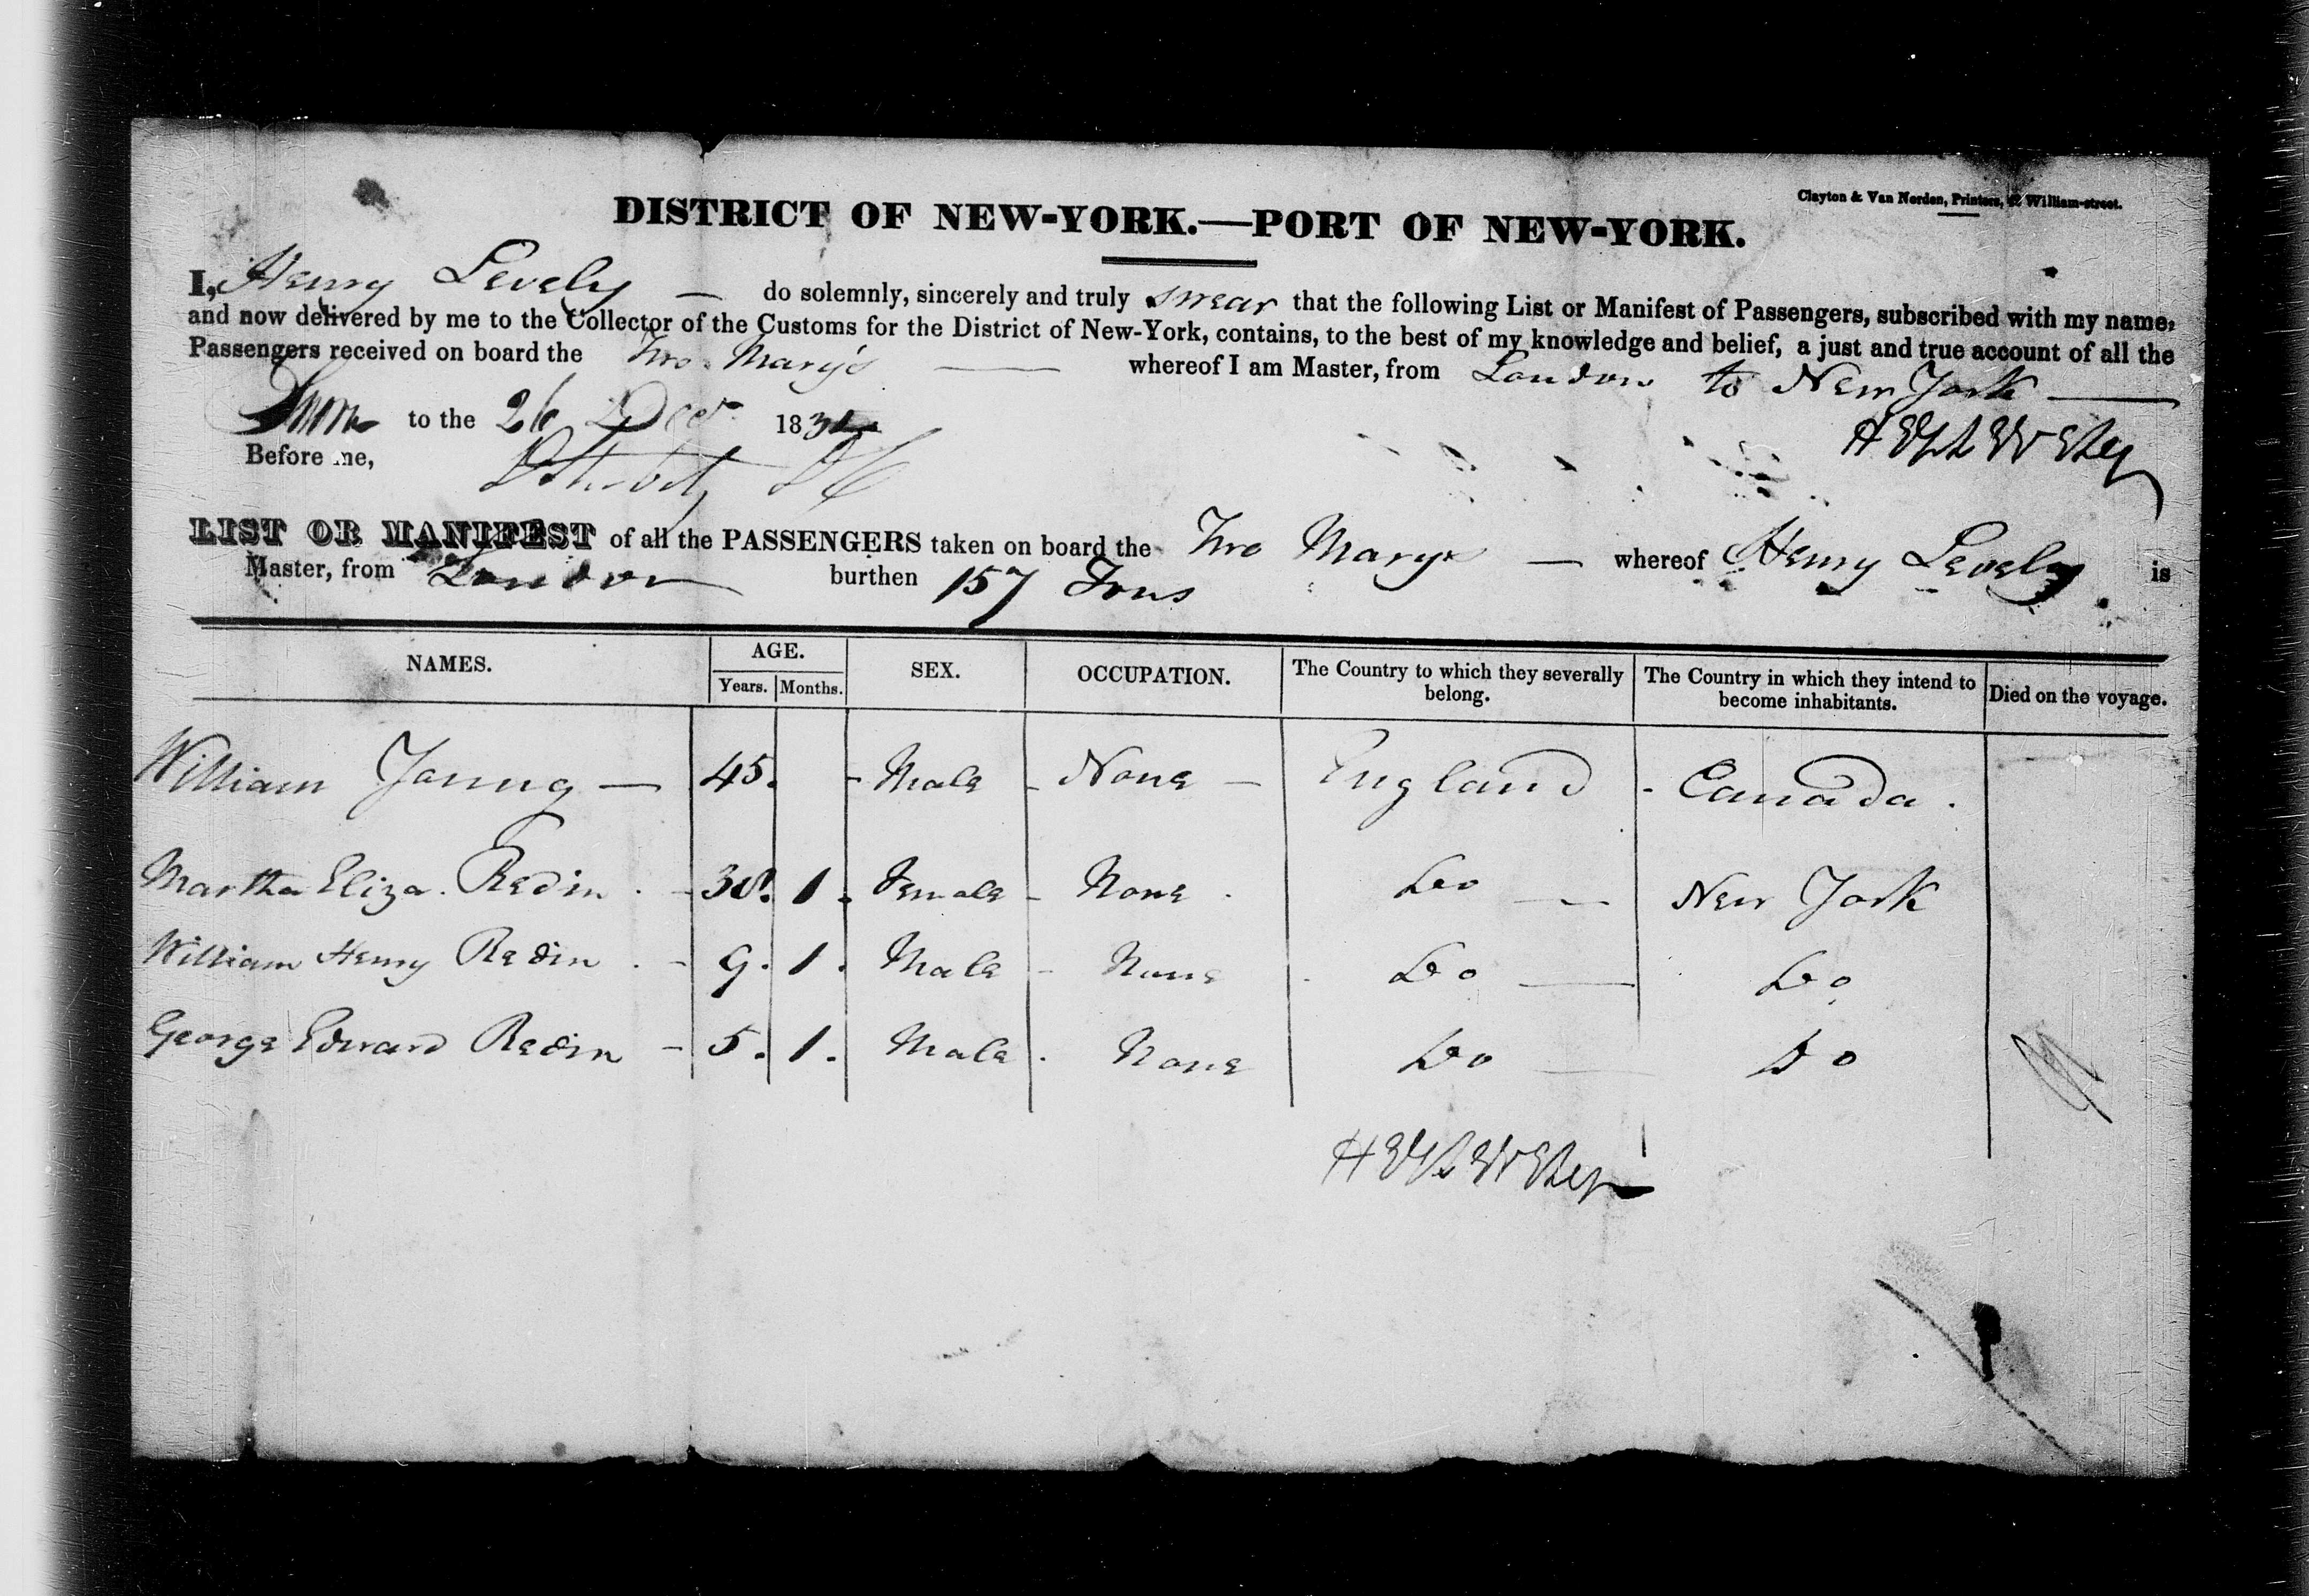 Clayton & Van Norden, Printers, William-street.
DISTRICT OF NEW-YORK.—PORT OF NEW-YORK.
I, Henry Levely — do solemnly, sincerely and truly swear that the following List or Manifest of Passengers, subscribed with my name,
and now delivered by me to the Collector of the Customs for the District of New-York, contains, to the best of my knowledge and belief, a just and true account of all the
Passengers received on board the Two Mary's — whereof I am Master, from London to New York —
Sworn to the 26 Decr 183
Before me,
LIST OR MANIFEST of all the PASSENGERS taken on board the Two Marys — whereof Henry Levely is
Master, from London burthen 157 Tons
NAMES. AGE. Years. Months. SEX. OCCUPATION. The Country to which they severally belong. The Country in which they intend to become inhabitants. Died on the voyage.
William Young — 45. - Male - None — England - Canada.
Martha Eliza. Redin. - 38. 1. Female - None. Do — New York
William Henry Redin. - 9. 1. Male - None. Do — Do
George Edward Redin - 5. 1. Male. None Do — Do